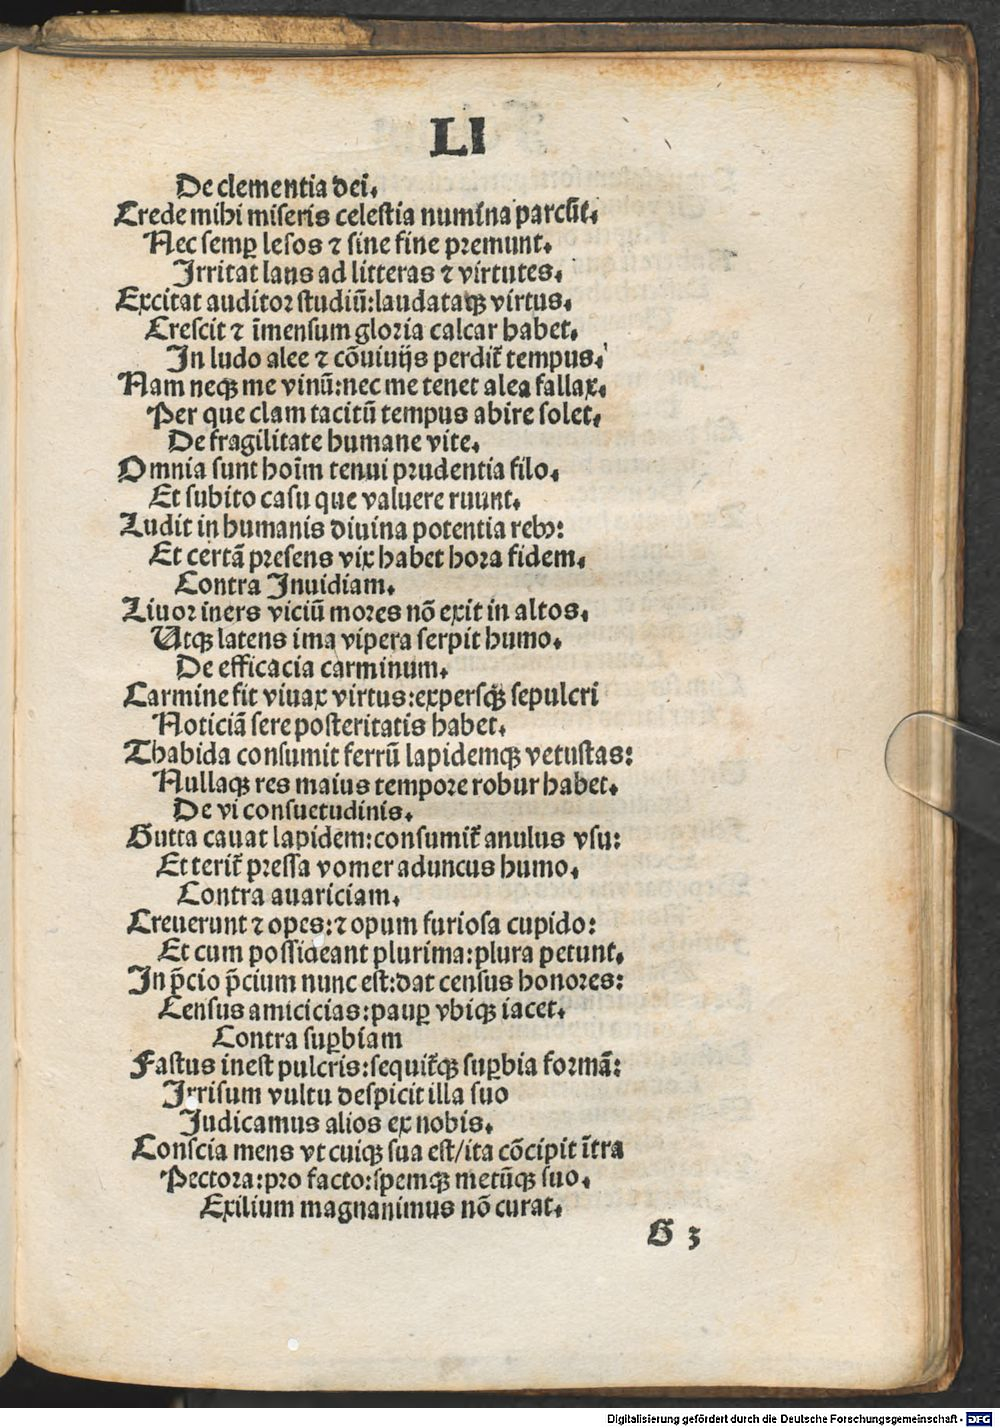 LI
De clementia dei.
Crede mihi miseris celestia numina parcūt.
Nec semꝑ lesos ⁊ sine fine premunt.
Irritat laus ad litteras ⁊ virtutes.
Excitat auditor studiū:laudataqꝫ virtus.
Crescit ⁊ īmensum gloria calcar habet.
In ludo alee ⁊ cōuiuijs perdit̄ tempus.
Nam neqꝫ me vinū:nec me tenet alea fallax.
Per que clam tacitū tempus abire solet.
De fragilitate humane vite.
Omnia sunt hoīm tenui prudentia filo.
Et subito casu que valuere ruunt.
Ludit in humanis diuina potentia rebꝰ:
Et certā presens vix habet hora fidem.
Contra Inuidiam.
Liuor iners viciū mores nō exit in altos.
Utqꝫ latens ima vipera serpit humo.
De efficacia carminum.
Carmine fit viuax virtus:expersqꝫ sepulcri
Noticiā sere posteritatis habet.
Thabida consumit ferrū lapidemqꝫ vetustas:
Nullaqꝫ res maius tempore robur habet.
De vi consuetudinis.
Gutta cauat lapidem:consumit̄ anulus vsu:
Et terit̄ pressa vomer aduncus humo.
Contra auariciam.
Creuerunt ⁊ opes:⁊ opum furiosa cupido:
Et cum possideant plurima:plura petunt.
In p̄cio p̄cium nunc est:dat census honores:
Census amicicias:pauꝑ vbiqꝫ iacet.
Contra suꝑbiam
Fastus inest pulcris:sequit̄qꝫ suꝑbia formā:
Irrisum vultu despicit illa suo
Iudicamus alios ex nobis.
Conscia mens vt cuiqꝫ sua est/ita cōcipit ītra
Pectora:pro facto:spemqꝫ metūqꝫ suo.
Exilium magnanimus nō curat.
G 3
Digitalisierung gefördert durch die Deutsche Forschungsgemeinschaft - DFG